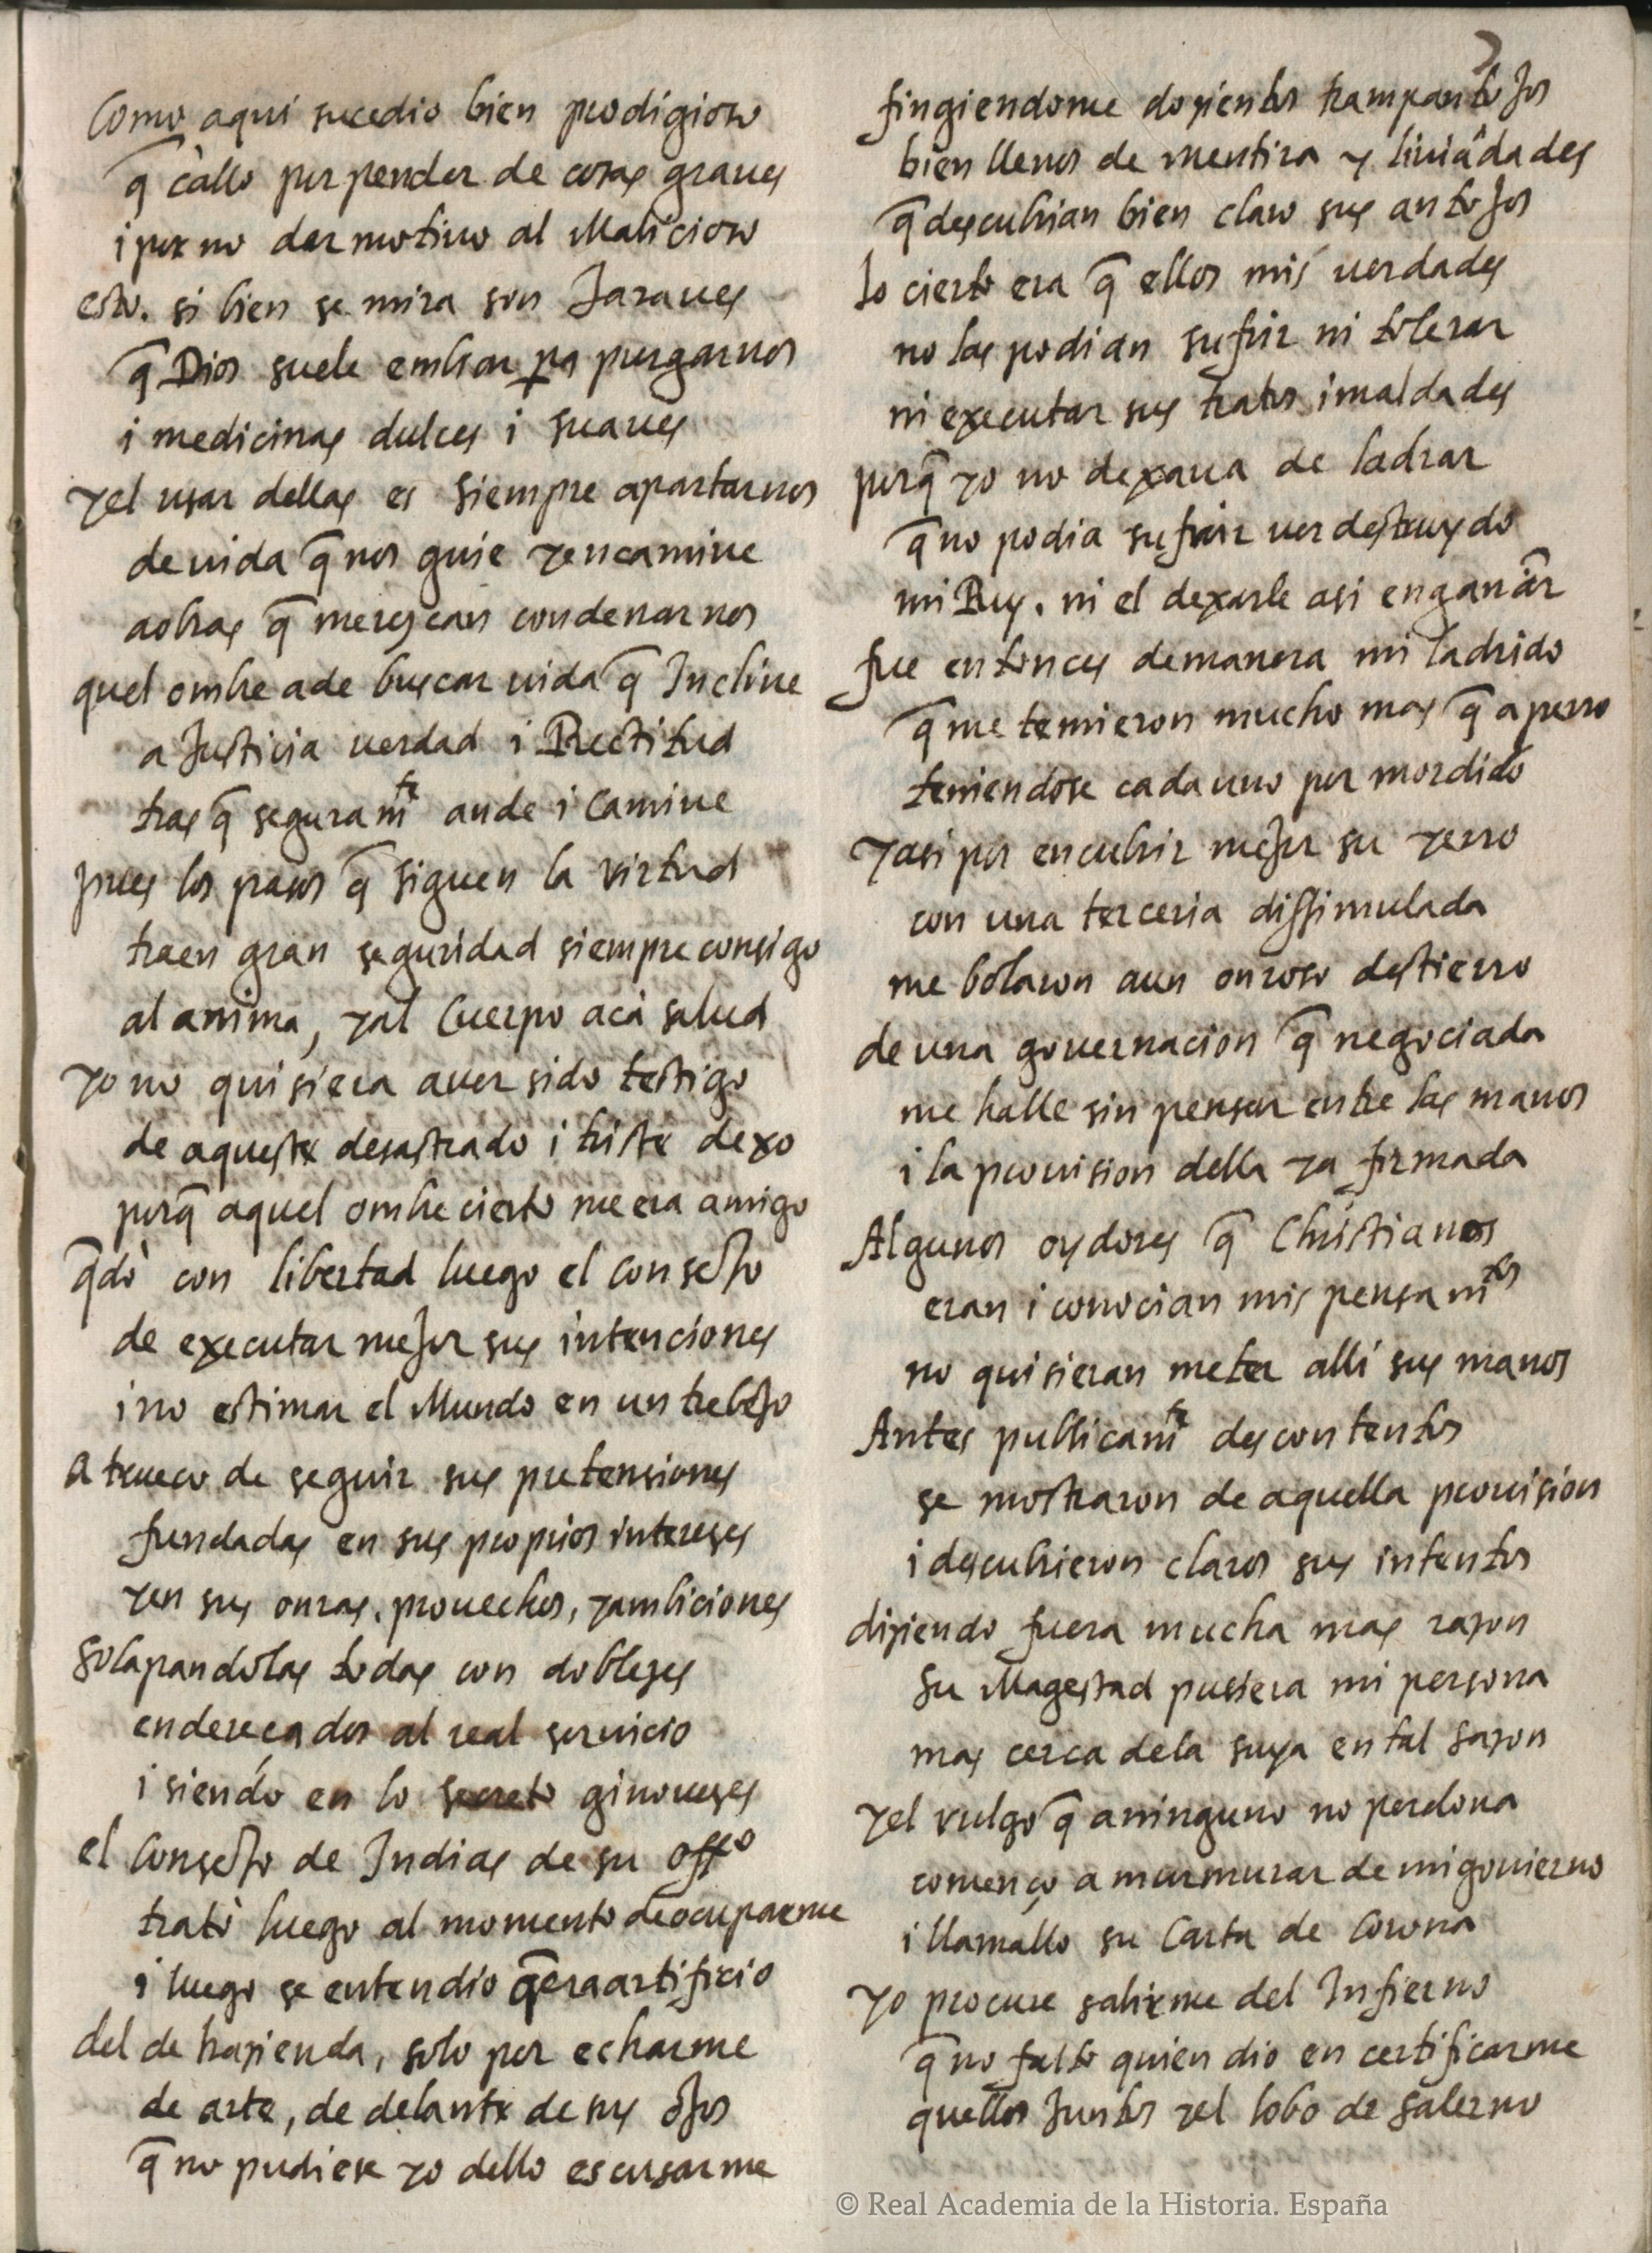 Como aqui sucedio bien prodigioso
q̄ callo por pender de cosas graues
i por no dar motiuo al Malicioso
esto. si bien se mira son Jaraues
q̄ Dios suele embiar pa purgarnos
i medicinas dulces i suaues
yel usar dellas es siempre apartarnos
de uida q̄ nos guie yencamine
aobras q̄ merescan condenarnos
quel ombre ade buscar uida q̄ Incline
a Justicia uerdad i Rectitud
tras q̄ seguram̄te ande i Camine
pues los pasos q̄ siguen la virtud
traen gran seguridad siempre consigo
al anima, yal Cuerpo acà salud
yo no quisiera auer sido testigo
de aqueste desastrado i triste dexo
porq̄ aquel ombre cierto me era amigo
q̄dò con libertad luego el Consejo
de executar mejor sus intenciones
i no estimar el Mundo en un trebejo
a trueco de seguir sus pretensiones
fundadas en sus propios intereses
yen sus onras, prouechos, yambiciones
Solapandolas todas con dobleses
endereçados al real seruicio
i siendo en lo secreto ginoueses
el Consejo de Indias de su offo
tratò luego al momento deocuparme
i luego se entendio q̄eraartificio
del de hazienda, solo por echarme
de arte, de delante de sus ojos
q̄ no pudiese yo dello escusarme
fingiendome dozientos trampantojos
bien llenos de mentira y liuiādades
q̄ descubrian bien claro sus antojos
lo cierto era q̄ ellos mis uerdades
no las podian sufrir ni tolerar
ni executar sus tratos imaldades
porq̄ yo no dexaua de ladrar
q̄ no podia sufrir uer destruydo
mi Rey. ni el dexarle asi engañar
fue entonces demanera mi ladrido
q̄ me temieron mucho mas q̄ aperro
teniendose cadauno por mordido
yasi por encubrir mejor su yerro
con una terceria dissimulada
me botaron aun onroso destierro
de una gouernacion q̄ negociada
me halle sin pensar entre las manos
i la prouision della ya firmada
Algunos oydores q̄ Christianos
eran i conocian mis pensam̄tos
no quisieran meter alli sus manos
Antes publicam̄te descontentos
se mostraron de aquella prouision
i descubrieron claros sus intentos
diziendo fuera mucha mas razon
Su Magestad pusiera mi persona
mas cerca dela suya en tal sazon
yel vulgo q̄ aninguno no perdona
començo a murmurar de migouierno
i llamallo su Carta de Corona
yo procure salirme del Infierno
q̄ no falto quien dio en certificarme
quellos Juntos yel lobo de Salerno
© Real Academia de la Historia. España